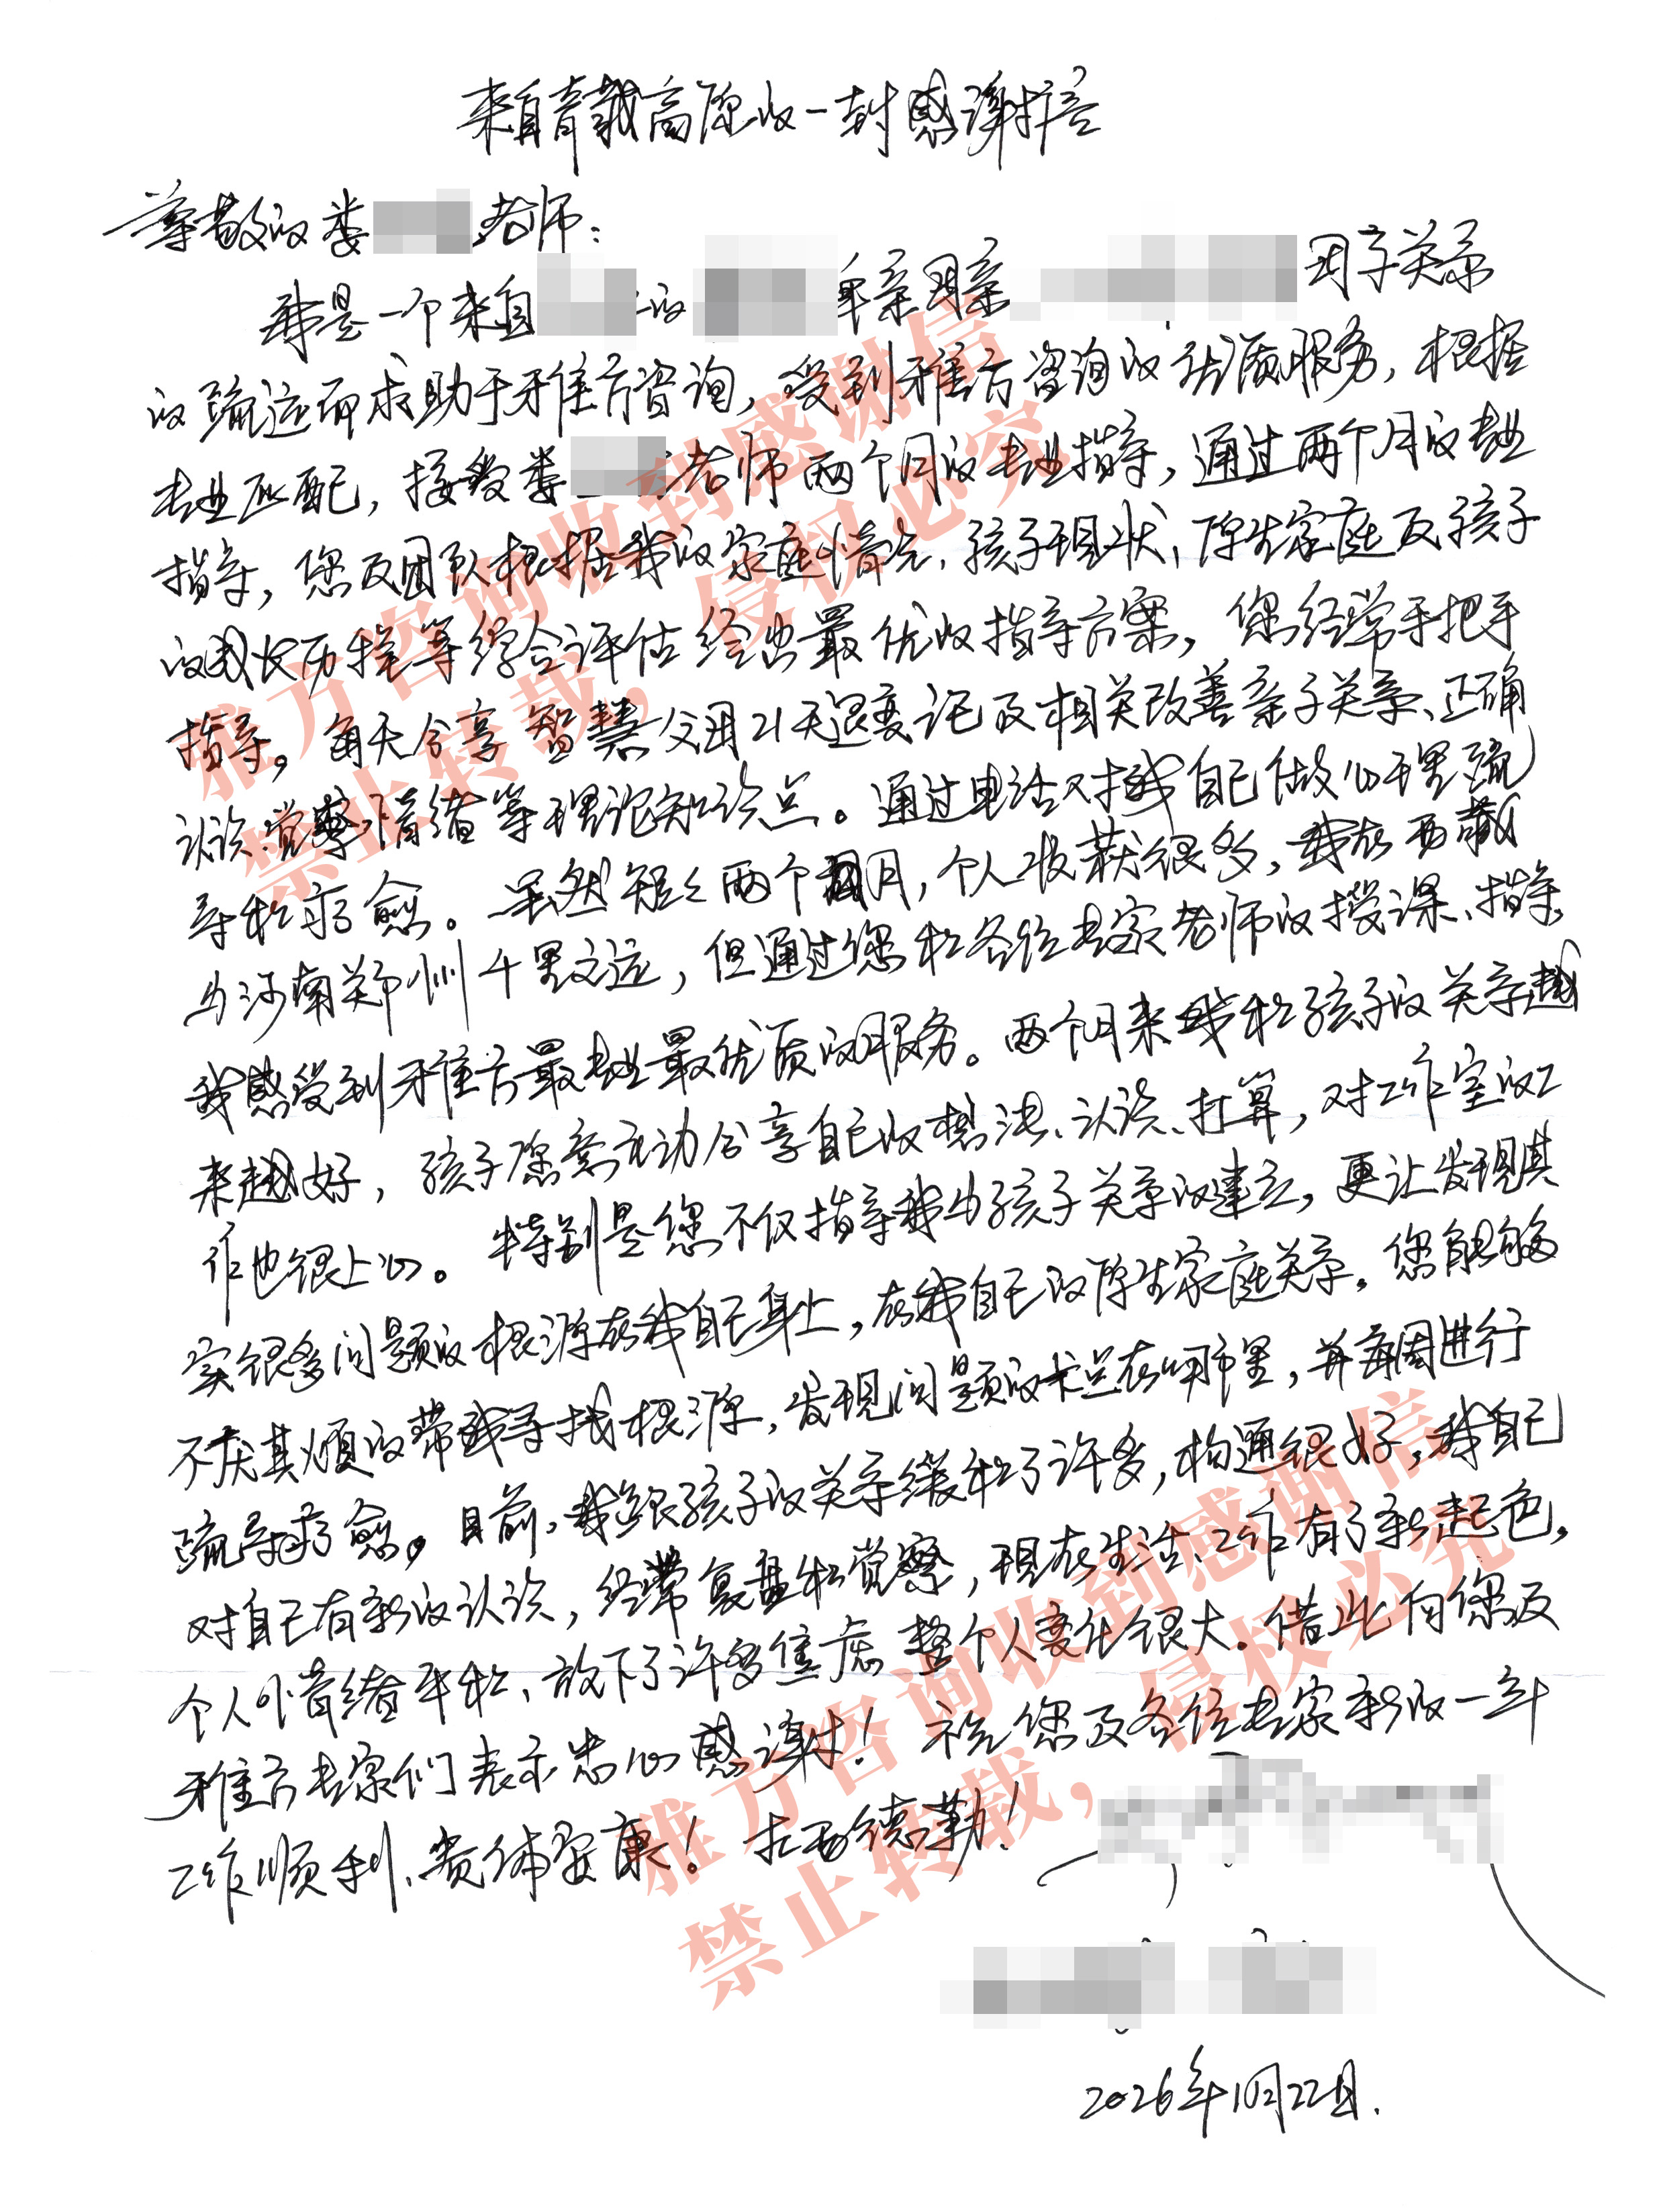 来自青藏高原的一封感谢信
尊敬的娄 老师：
我是一个来自 的 单亲母亲 母子关系
的疏远而求助于雅方咨询，受到雅方咨询的优质服务，根据
专业匹配，接受娄 老师两个月的专业指导，通过两个月的专业
指导，您及团队根据我的家庭情况、孩子现状、原生家庭及孩子
的成长历程等综合评估给出最优的指导方案，您经常手把手
指导。每天分享智慧父母21天退变记及相关改善亲子关系、正确
认识觉察情绪等理论知识点。通过电话对我自己做心理疏
导和疗愈。虽然短短两个月，个人收获很多，我在西藏
与河南郑州千里之远，但通过您和各位专家老师的授课、指导，
我感受到雅方最专业最优质的服务。两个月来我和孩子的关系越
来越好，孩子愿意主动分享自己的想法、认识、打算，对工作室的工
作也很上心。特别是您不仅指导我与孩子关系的建立，更让发现其
实很多问题的根源在我自己身上，在我自己的原生家庭关系。您能够
不厌其烦的带我寻找根源，发现问题的卡点在哪里，并每周进行
疏导疗愈。目前，我跟孩子的关系缓和了许多，构通很好，我自己
对自己有新的认识，经常复盘和觉察，现在生活、工作有了新起色，
个人情绪平和、放下了许多焦虑 整个人变化很大。借此向您及
雅方专家们表示忠心感谢！祝您及各位专家新的一年
工作顺利、贵体安康！扎西德勒！
2026年10月22日.
雅方咨询收到感谢信
禁止转载，侵权必究
雅方咨询收到感谢信
禁止转载，侵权必究